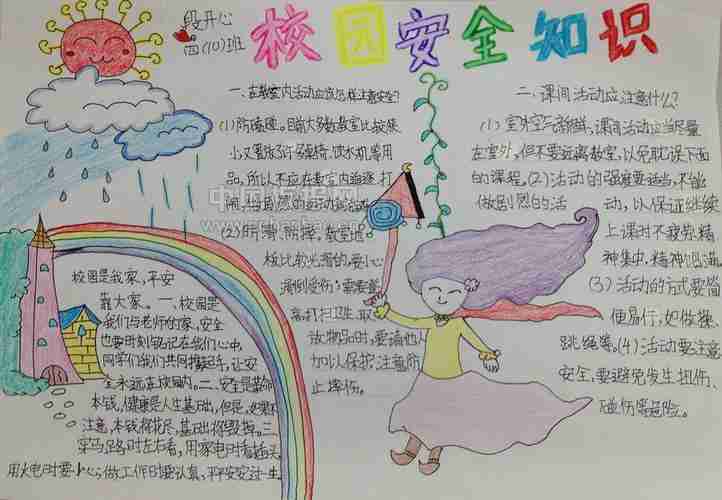 段开心
四(10)班
校园安全知识
一、在教室内活动应该怎样注意安全?
(1)防磕碰。目前大多数教室比较狭
小,又置放了许多桌椅、饮水机等用
品,所以不应在教室内追逐、打
闹,做剧烈的运动和游戏
(2)防滑、防摔。教室地
板比较光滑的,要小心
滑倒受伤;需要登
高打扫卫生、取
放物品时,要请他人
加以保护,注意防
止摔伤。
二、课间活动应注意什么?
(1)室外空气新鲜,课间活动应当尽量
在室外,但不要远离教室,以免耽误下面
的课程。(2)活动的强度要适当,不能
做剧烈的活动,以保证继续
上课时不疲劳,精
神集中,精神饱满
(3)活动的方式要简
便易行,如做操、
跳绳等。(4)活动要注意
安全,要避免发生扭伤、
碰伤等危险。
校园是我家,平安
靠大家。一、校园是
我们与老师的家,安全
也要时刻铭记在我们心中,
同学们我们共同携起手,让安
全永远在校园内。二、安全是革命
本钱,健康是人生基础,但是,如果不
注意,本钱将花尽,基础将毁掉。三、
穿马路时左右看,用家电时看插头
用火电时要小心,做工作时要认真,平平安安过一生。